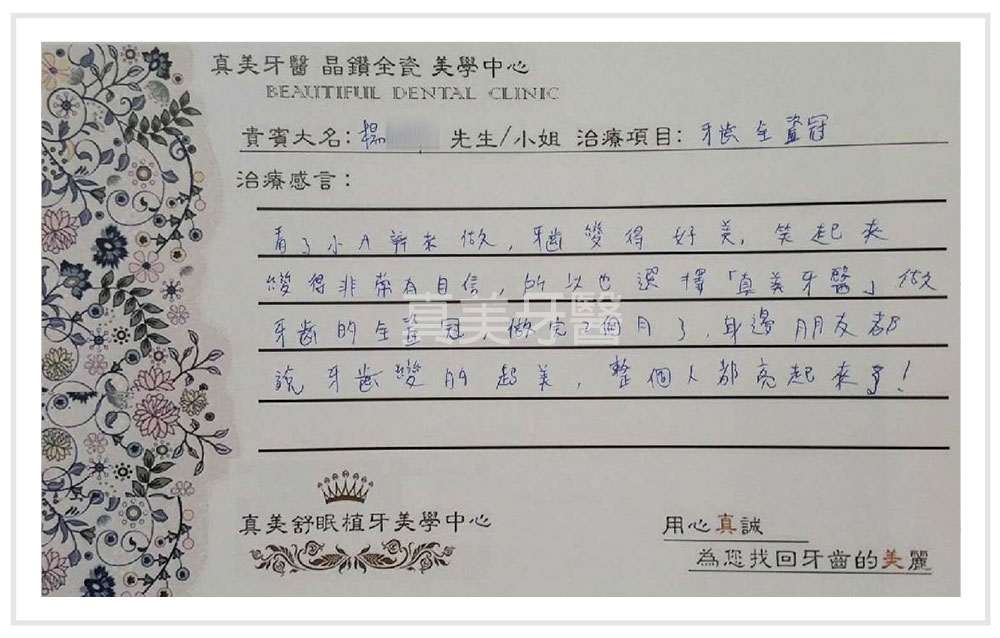 真美牙醫 晶鑽全瓷 美學中心
BEAUTIFUL DENTAL CLINIC
貴賓大名：楊 先生/小姐 治療項目：牙齒全瓷冠
治療感言：
看了小A辦來做，牙齒變得好美，笑起來
變得非常有自信，所以也選擇「真美牙醫」做
牙齒的全瓷冠，做完2個月了，身邊朋友都
說牙齒變的超美，整個人都亮起來了！
真美牙醫
真美舒眠植牙美學中心
用心真誠
為您找回牙齒的美麗